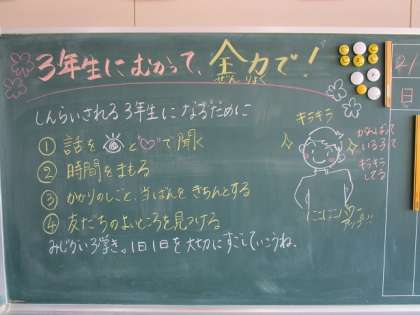 3年生にむかって、全力で!
ぜん りょく
しんらいされる3年生になるために
① 話を と で聞く
② 時間をまもる
③ かかりのしごと、当ばんをきちんとする
④ 友だちのよいところを見つける
みじかい3学き。1日1日を大切にすごしていこうね。
キラキラ
がんばって
いる
キラキラ
してる
ニコニコ
21
日